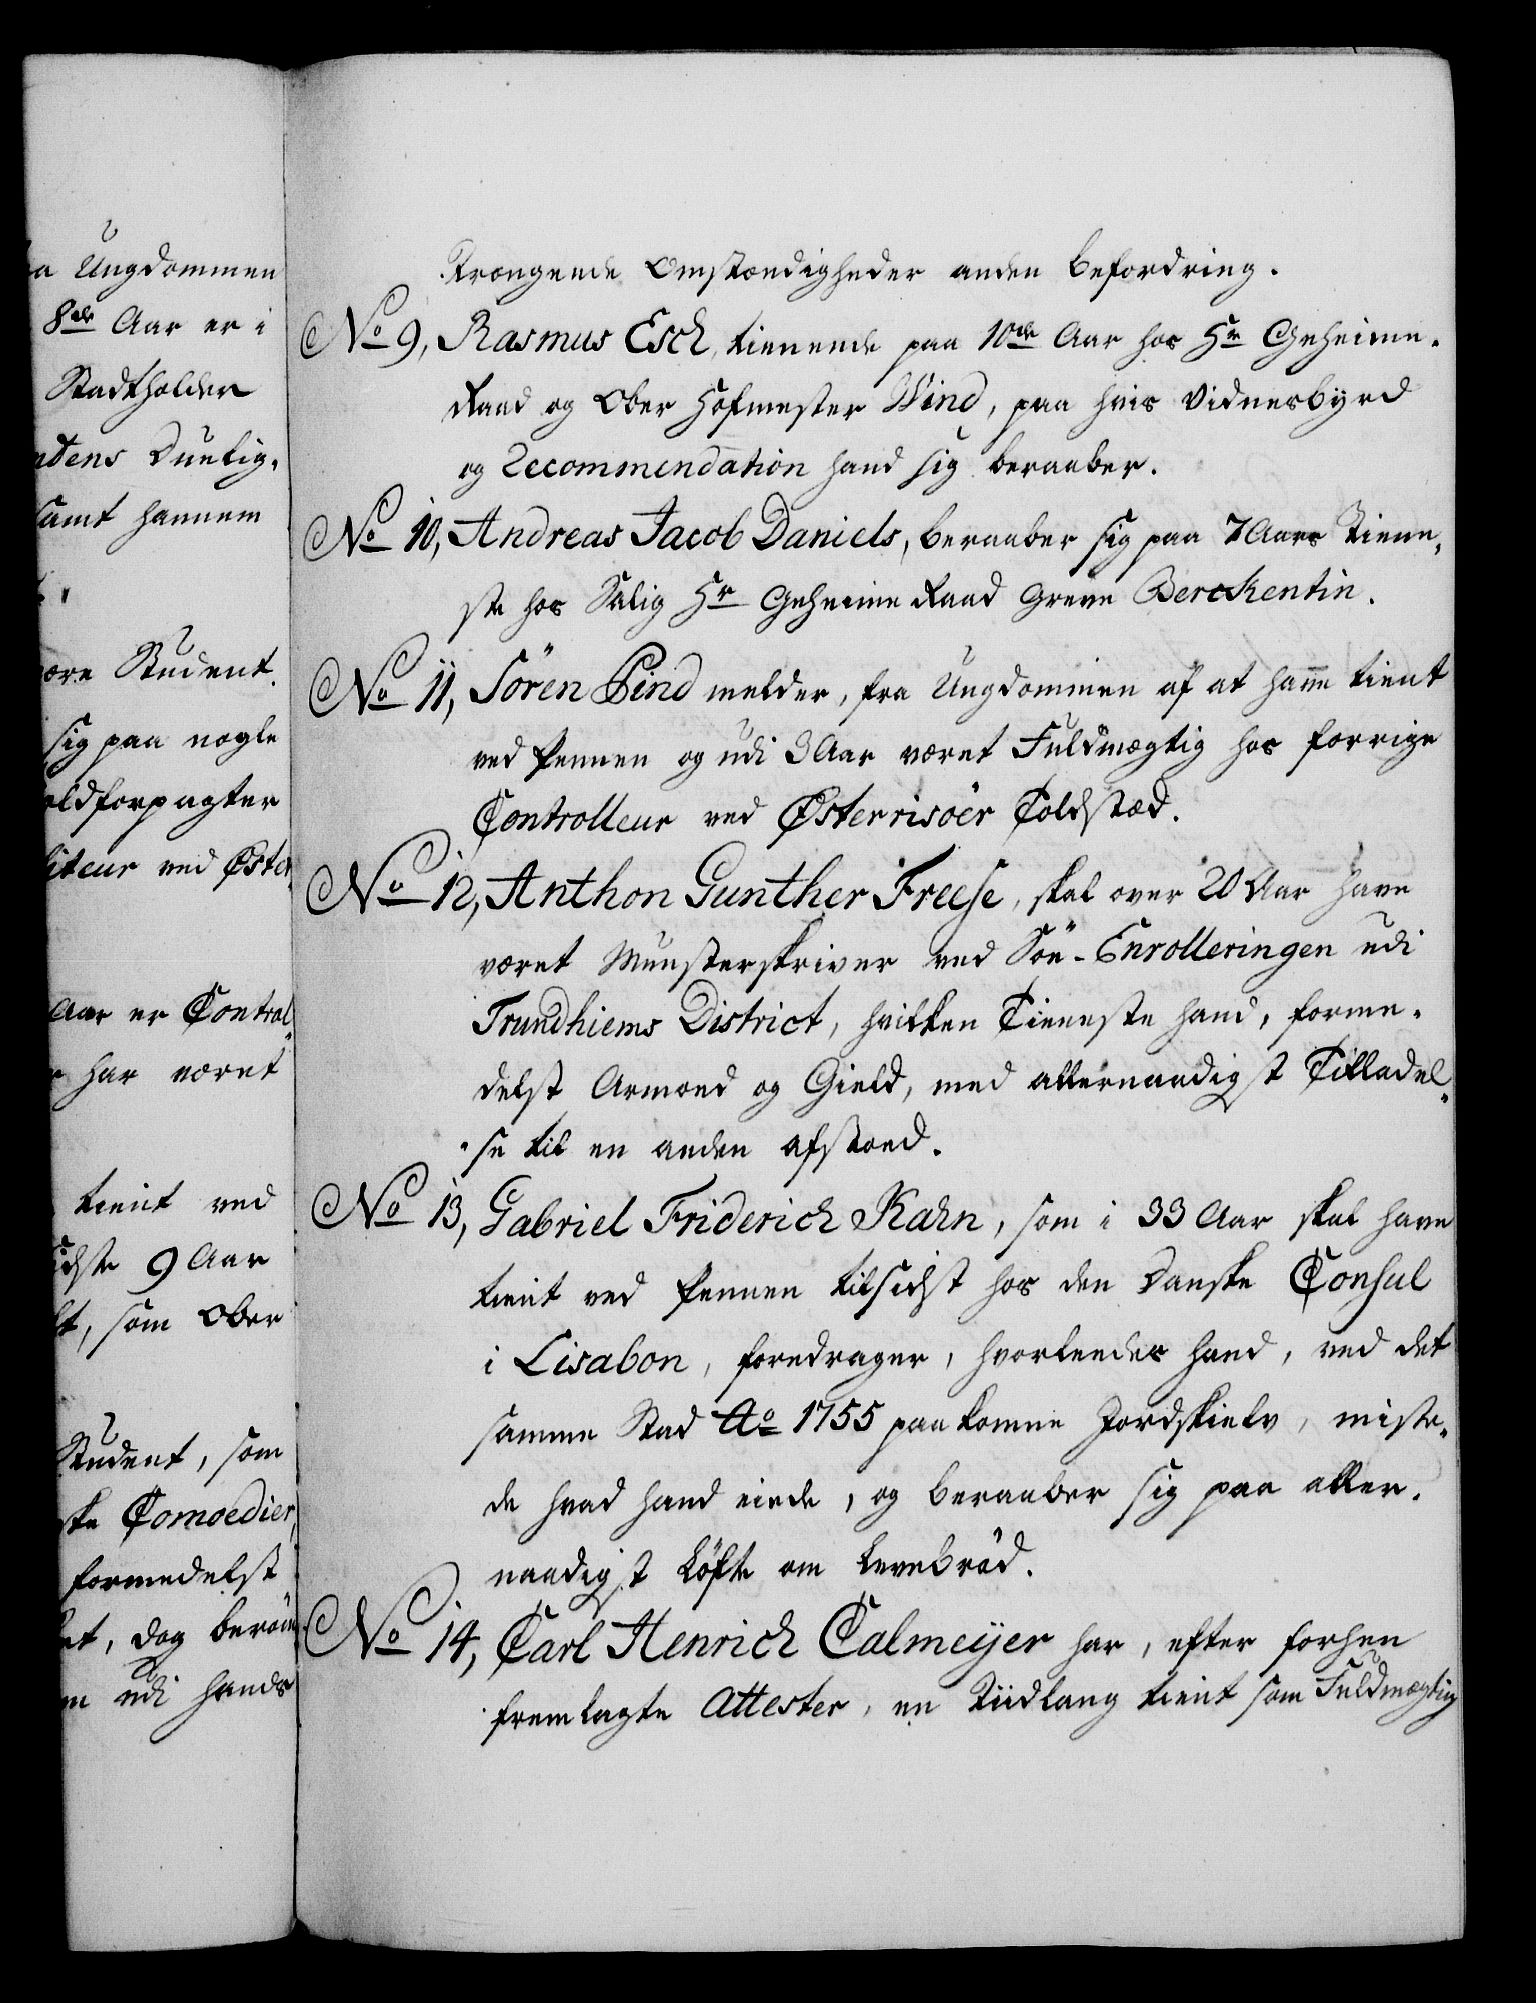 a Ungdommen
8de Aar er i
Stadtholder
ndens Duelig„
samt hannem
være Student.
sig paa nogle
oldforpagter
iteur ved Øster„
Aar er Control„
har været
tient ved
idste 9 Aar
lt, som Ober
Student, som
ske Comoedier,
formedelst
et, dog beröm
udi hands
trængende Omstændigheder anden befordring.
No 9, Rasmus Esch, tienende paa 10de Aar hos Hr Geheime„
Raad og Ober Hofmester Wind, paa hvis Vidnesbyrd
og Recommendation hand sig beraaber.
No 10, Andreas Jacob Daniels, beraaber sig paa 7 Aars Tiene„
ste hos Salig Hr Geheime Raad Greve Berckentin.
No 11, Sören Pind melder, fra Ungdommen af at have tient
ved Pennen og udi 3 Aar været Fuldmægtig hos forrige
Controlleur ved Østerrisöer Toldstæd.
No 12, Anthon Gunther Freese, skal over 20 Aar have
været Munsterskriver ved Söe-Enrolleringen udi
Trundhiems District, hvilken Tieneste hand, forme„
delst Armoed og Gield, med allernaadigst Tilladel„
„se til en anden afstoed.
No 13, Gabriel Friderich Kahn, som i 33 Aar skal have
tient ved Pennen tilsidst hos den Danske Consul
i Lisabon, foredrager, hvorledes hand, ved det
samme Stad Ao 1755 paakomne Jordskielv, miste„
de hvad hand eiede, og beraaber sig paa aller„
naadigst Löfte om Levebröd.
No 14, Carl Henrich Calmeijer har, efter forhen
fremlagte Attester, en Tiidlang tient som Fuldmægtig